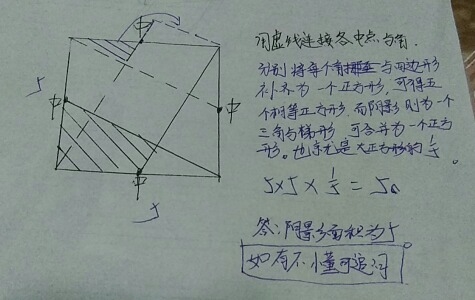 中
用虚线连接各中点与角.
5
分别将每个角 与四边形
补齐为一个正方形,可得五
中
中
个相等正方形,而阴影则为一个
三角与梯形,可合并为一个正方
形。也就是大正方形的1/5
中
5×5×1/5=5。
5
答:阴影面积为5。
如有不懂可追问